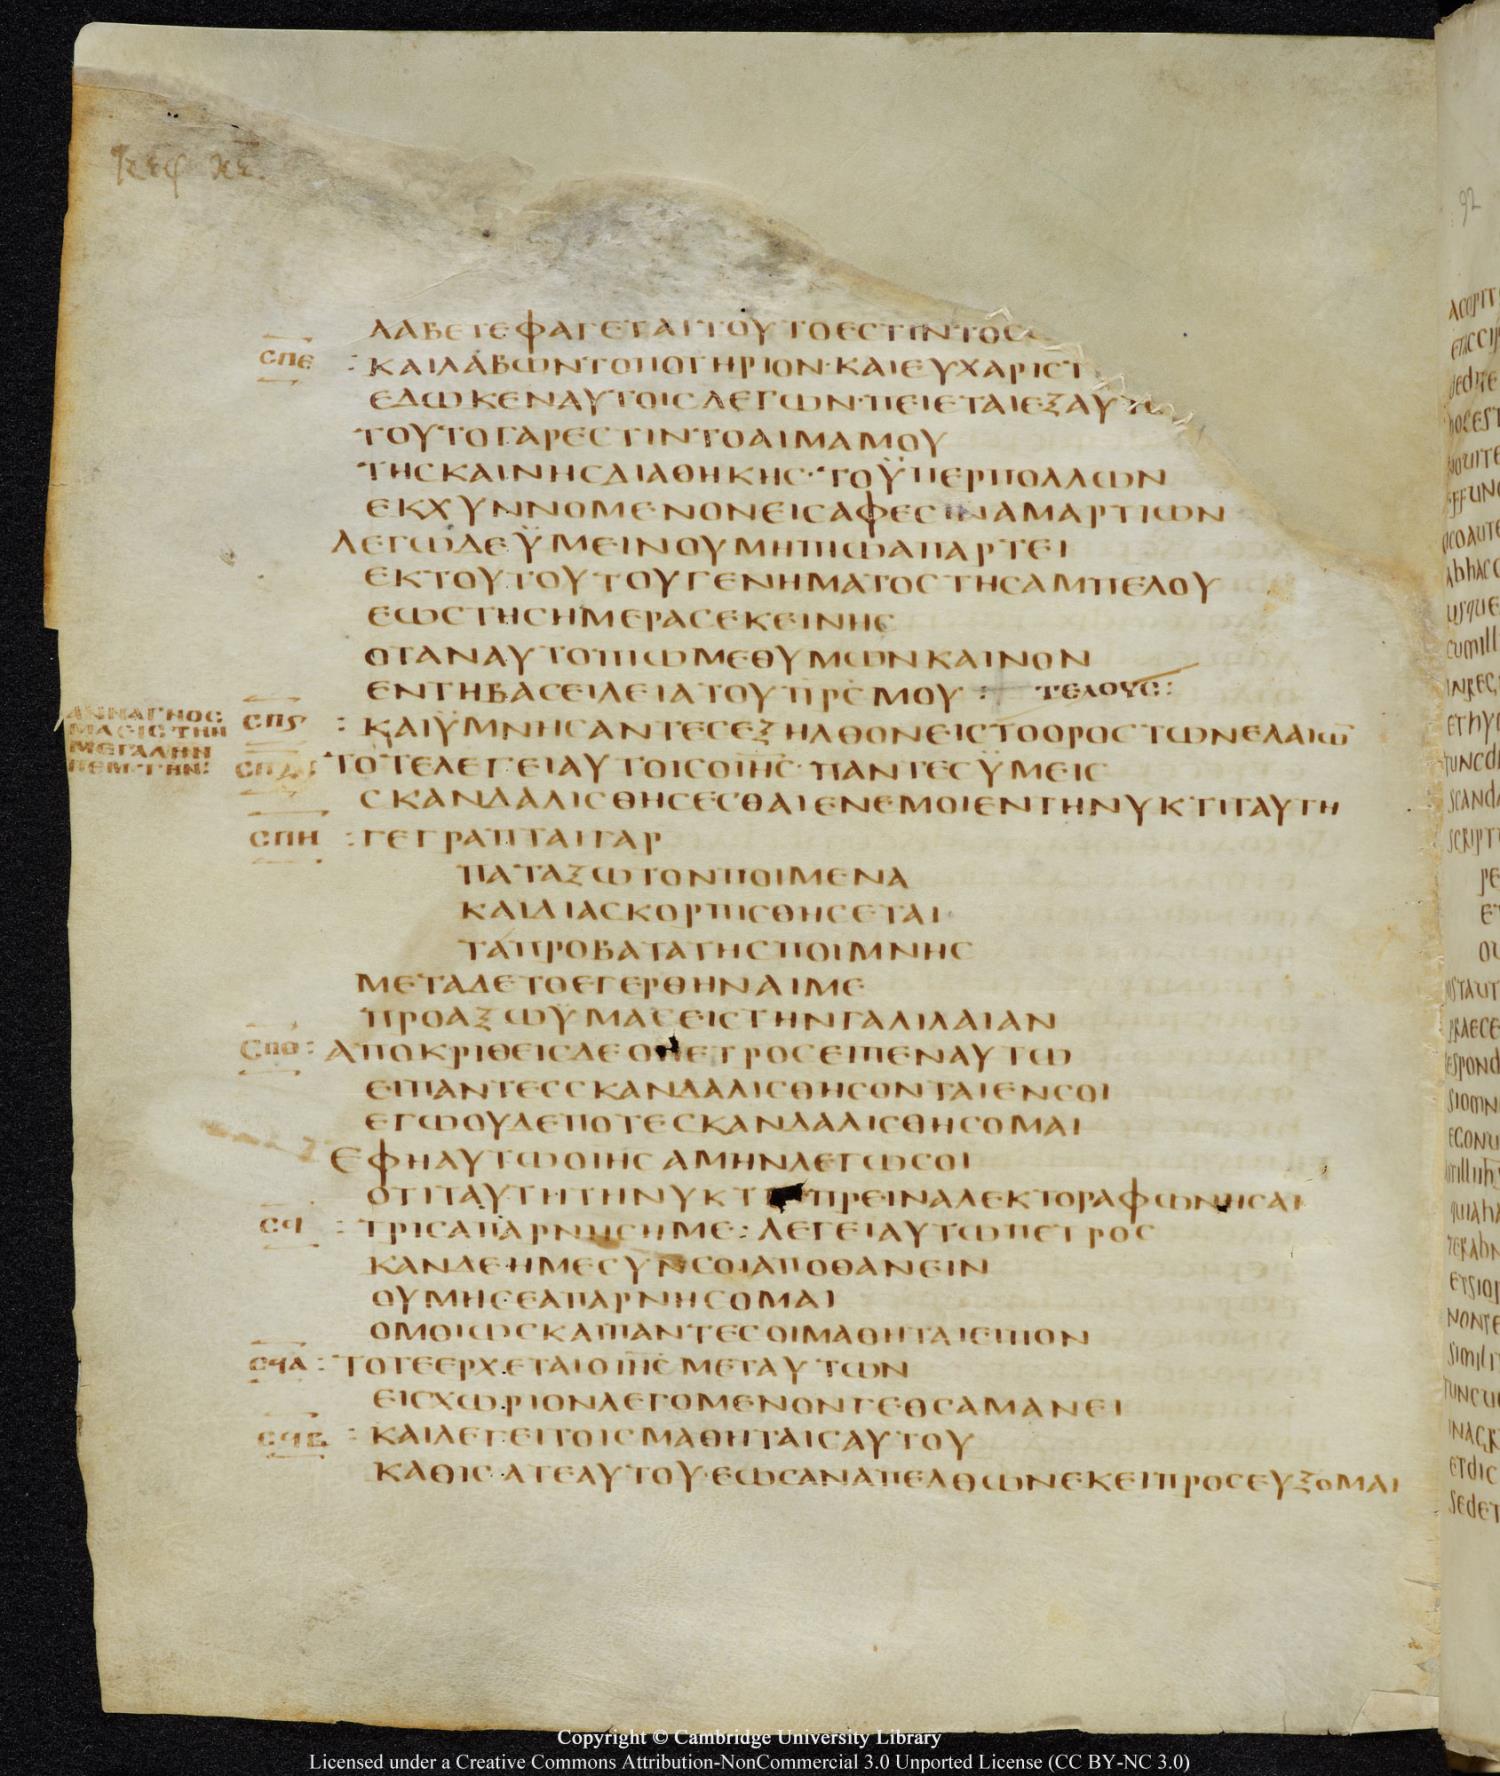 κεφ κε.
ΛΑΒΕΤΕΦΑΓΕΤΑΙΤΟΥΤΟΕΣΤΙΝΤΟΣ
ΣΠΕ : ΚΑΙΛΑΒΩΝΤΟΠΟΤΗΡΙΟΝ·ΚΑΙΕΥΧΑΡΙΣΤ
ΕΔΩΚΕΝΑΥΤΟΙΣΛΕΓΩΝ·ΠΕΙΕΤΑΙΕΞΑΥΤ
ΤΟΥΤΟΓΑΡΕΣΤΙΝΤΟΑΙΜΑΜΟΥ
ΤΗΣΚΑΙΝΗΣΔΙΑΘΗΚΗΣ·ΤΟΫΠΕΡΠΟΛΛΩΝ
ΕΚΧΥΝΝΟΜΕΝΟΝΕΙΣΑΦΕΣΙΝΑΜΑΡΤΙΩΝ
ΛΕΓΩΔΕΫΜΕΙΝΟΥΜΗΠΙΩΑΠΑΡΤΕΙ
ΕΚΤΟΥΤΟΥΤΟΥΓΕΝΗΜΑΤΟΣΤΗΣΑΜΠΕΛΟΥ
ΕΩΣΤΗΣΗΜΕΡΑΣΕΚΕΙΝΗΣ
ΟΤΑΝΑΥΤΟΠΙΩΜΕΘΥΜΩΝΚΑΙΝΟΝ
ΕΝΤΗΒΑΣΕΙΛΕΙΑΤΟΥΠΡ̅Σ̅ΜΟΥ : ΤΕΛΟΥΣ:
ΑΝΝΑΓΝΟΣ
ΜΑΣΙΣΤΗΝ
ΜΕΓΑΛΗΝ
ΠΕΜΤΗΝ:
ΣΠϚ : ΚΑΙΫΜΝΗΣΑΝΤΕΣΕΞΗΛΘΟΝΕΙΣΤΟΟΡΟΣΤΩΝΕΛΑΙΩ̅
ΤΟΤΕΛΕΓΕΙΑΥΤΟΙΣΟΙ̅Η̅Σ̅·ΠΑΝΤΕΣΫΜΕΙΣ
ΣΚΑΝΔΑΛΙΣΘΗΣΕΣΘΑΙΕΝΕΜΟΙΕΝΤΗΝΥΚΤΙΤΑΥΤΗ
ΣΠΗ : ΓΕΓΡΑΠΤΑΙΓΑΡ
ΠΑΤΑΞΩΤΟΝΠΟΙΜΕΝΑ
ΚΑΙΔΙΑΣΚΟΡΠΙΣΘΗΣΕΤΑΙ
ΤΑΠΡΟΒΑΤΑΤΗΣΠΟΙΜΝΗΣ
ΜΕΤΑΔΕΤΟΕΓΕΡΘΗΝΑΙΜΕ
ΠΡΟΑΞΩΫΜΑΣΕΙΣΤΗΝΓΑΛΙΛΑΙΑΝ
ΣΠΘ : ΑΠΟΚΡΙΘΕΙΣΔΕΟΠΕΤΡΟΣΕΙΠΕΝΑΥΤΩ
ΕΙΠΑΝΤΕΣΣΚΑΝΔΑΛΙΣΘΗΣΟΝΤΑΙΕΝΣΟΙ
ΕΓΩΟΥΔΕΠΟΤΕΣΚΑΝΔΑΛΙΣΘΗΣΟΜΑΙ
ΕΦΗΑΥΤΩΟΙ̅Η̅Σ̅ΑΜΗΝΛΕΓΩΣΟΙ
ΟΤΙΤΑΥΤΗΤΗΝΥΚΤ ΠΡΕΙΝΑΛΕΚΤΟΡΑΦΩΝΗΣΑΙ
ΣϤ : ΤΡΙΣΑΠΑΡΝΗΣΗΜΕ: ΛΕΓΕΙΑΥΤΩΠΕΤΡΟΣ
ΚΑΝΔΕΗΜΕΣΥΝΣΟΙΑΠΟΘΑΝΕΙΝ
ΟΥΜΗΣΕΑΠΑΡΝΗΣΟΜΑΙ
ΟΜΟΙΩΣΚΑΙΠΑΝΤΕΣΟΙΜΑΘΗΤΑΙΕΙΠΟΝ
ΣϤΑ : ΤΟΤΕΕΡΧΕΤΑΙΟΙ̅Η̅Σ̅ΜΕΤΑΥΤΩΝ
ΕΙΣΧΩΡΙΟΝΛΕΓΟΜΕΝΟΝΓΕΘΣΑΜΑΝΕΙ
ΣϤΒ : ΚΑΙΛΕΓΕΙΤΟΙΣΜΑΘΗΤΑΙΣΑΥΤΟΥ
ΚΑΘΙΣΑΤΕΑΥΤΟΥ·ΕΩΣΑΝΑΠΕΛΘΩΝΕΚΕΙΠΡΟΣΕΥΞΟΜΑΙ
92
Copyright © Cambridge University Library
Licensed under a Creative Commons Attribution-NonCommercial 3.0 Unported License (CC BY-NC 3.0)